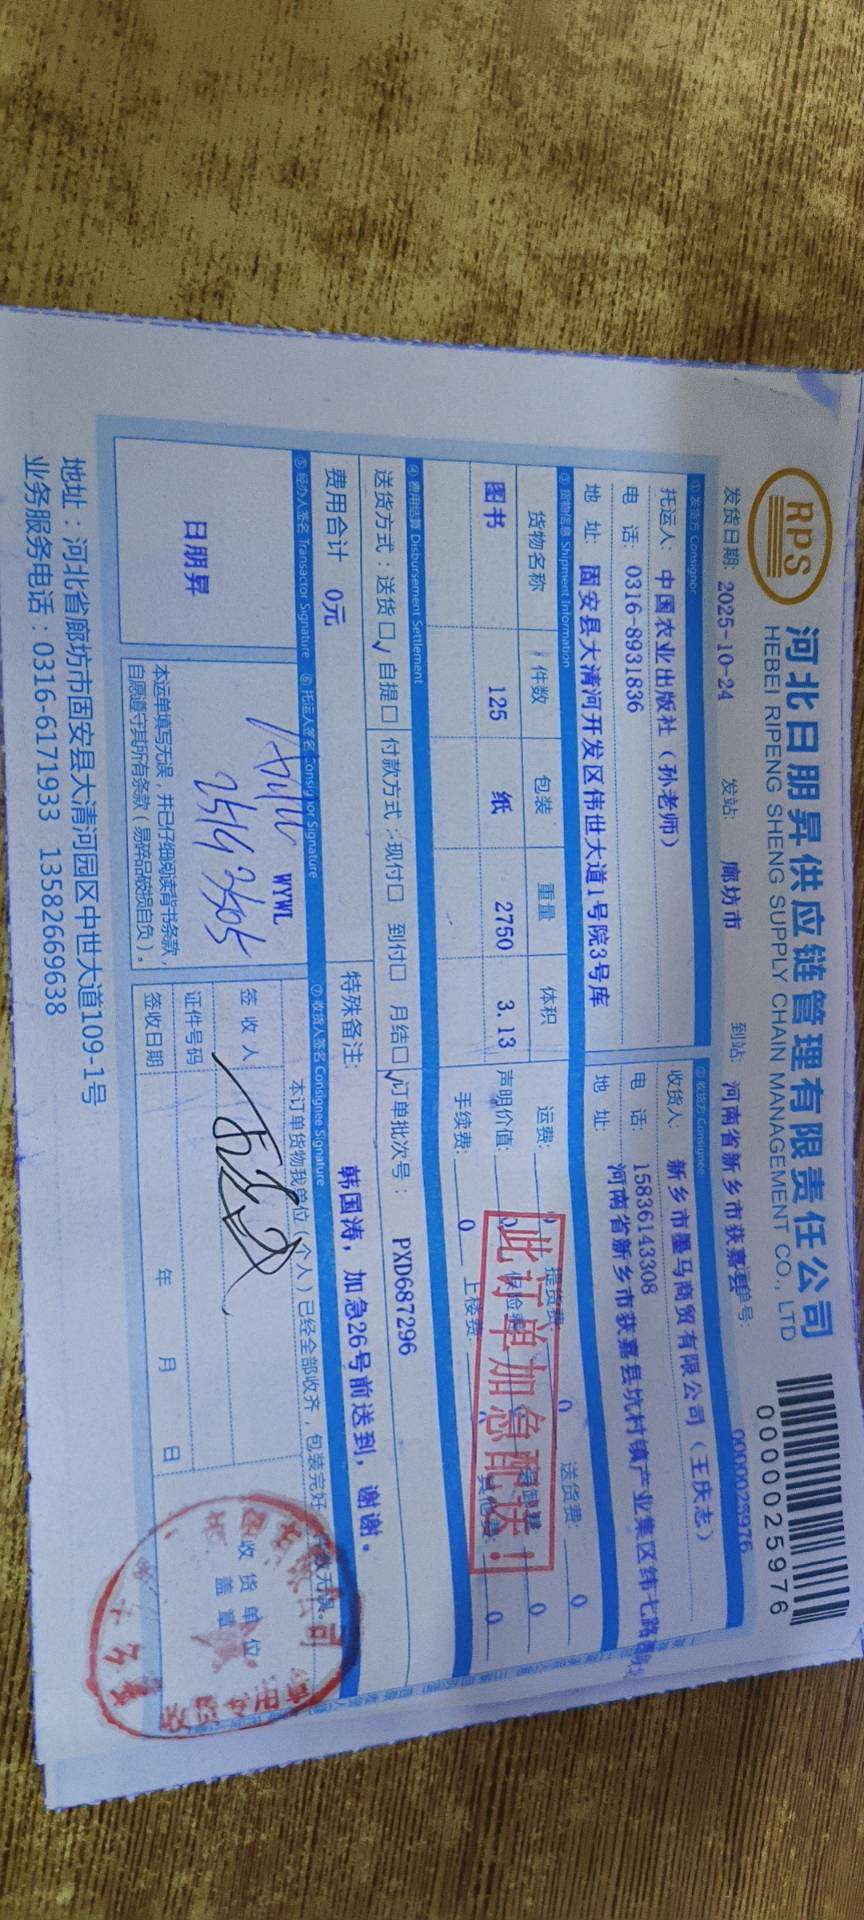 RPS
河北日朋昇供应链管理有限责任公司
HEBEI RIPENG SHENG SUPPLY CHAIN MANAGEMENT CO., LTD
0000025976
发货日期: 2025-10-24 发站: 廊坊市 到站: 河南省新乡市获嘉县 单号: 0000025976
①发货方 Consignor ②收货方 Consignee
托运人: 中国农业出版社（孙老师） 收货人: 新乡市墨马商贸有限公司（王庆志）
电 话: 0316-8931836 电 话: 15836143308
地 址: 固安县大清河开发区伟世大道1号院3号库 地 址: 河南省新乡市获嘉县坑村镇产业集区纬七路
③货物信息 Shipment Information
货物名称 件数 包装 重量 体积 运费: 0 提货费: 0 送货费: 0
图书 125 纸 2750 3.13 声明价值: 0 保险费: 装卸费: 0
手续费: 0 上楼费: 其他费: 0
此订单加急配送！
④费用结算 Disbursement Settlement
送货方式：送货口√ 自提口 付款方式：现付口 到付口 月结口√ 订单批次号： PXD687296
费用合计 0元 特殊备注: 韩国涛，加急26号前送到，谢谢。
⑤经办人签名 Transactor Signature ⑥托运人签名 Consignor Signature ⑦收货人签名 Consignee Signature
日朋昇
WYWL
本运单填写无误，并已仔细阅读背书条款，
自愿遵守其所有条款（易碎品破损自负）。
本订单货物我单位（个人）已经全部收齐，包装完好
签 收 人
证件号码
签收日期 年 月 日
收货单位
盖章
地址：河北省廊坊市固安县大清河园区中世大道109-1号
业务服务电话：0316-6171933 13582669638